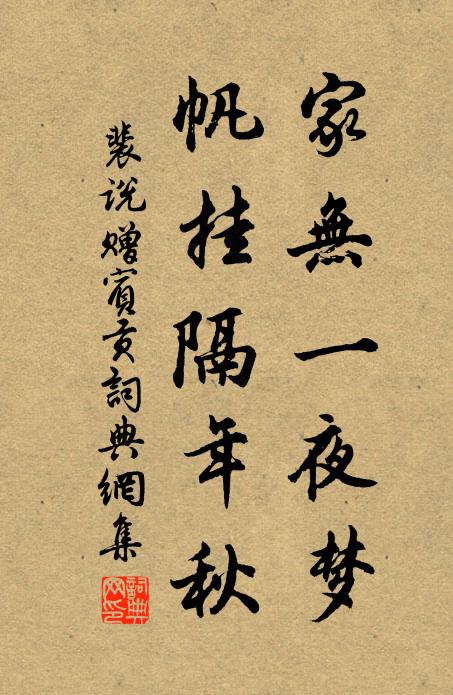 家無一夜梦
帆挂隔年秋
裴说赠賓贡詞典網集
詞典网印